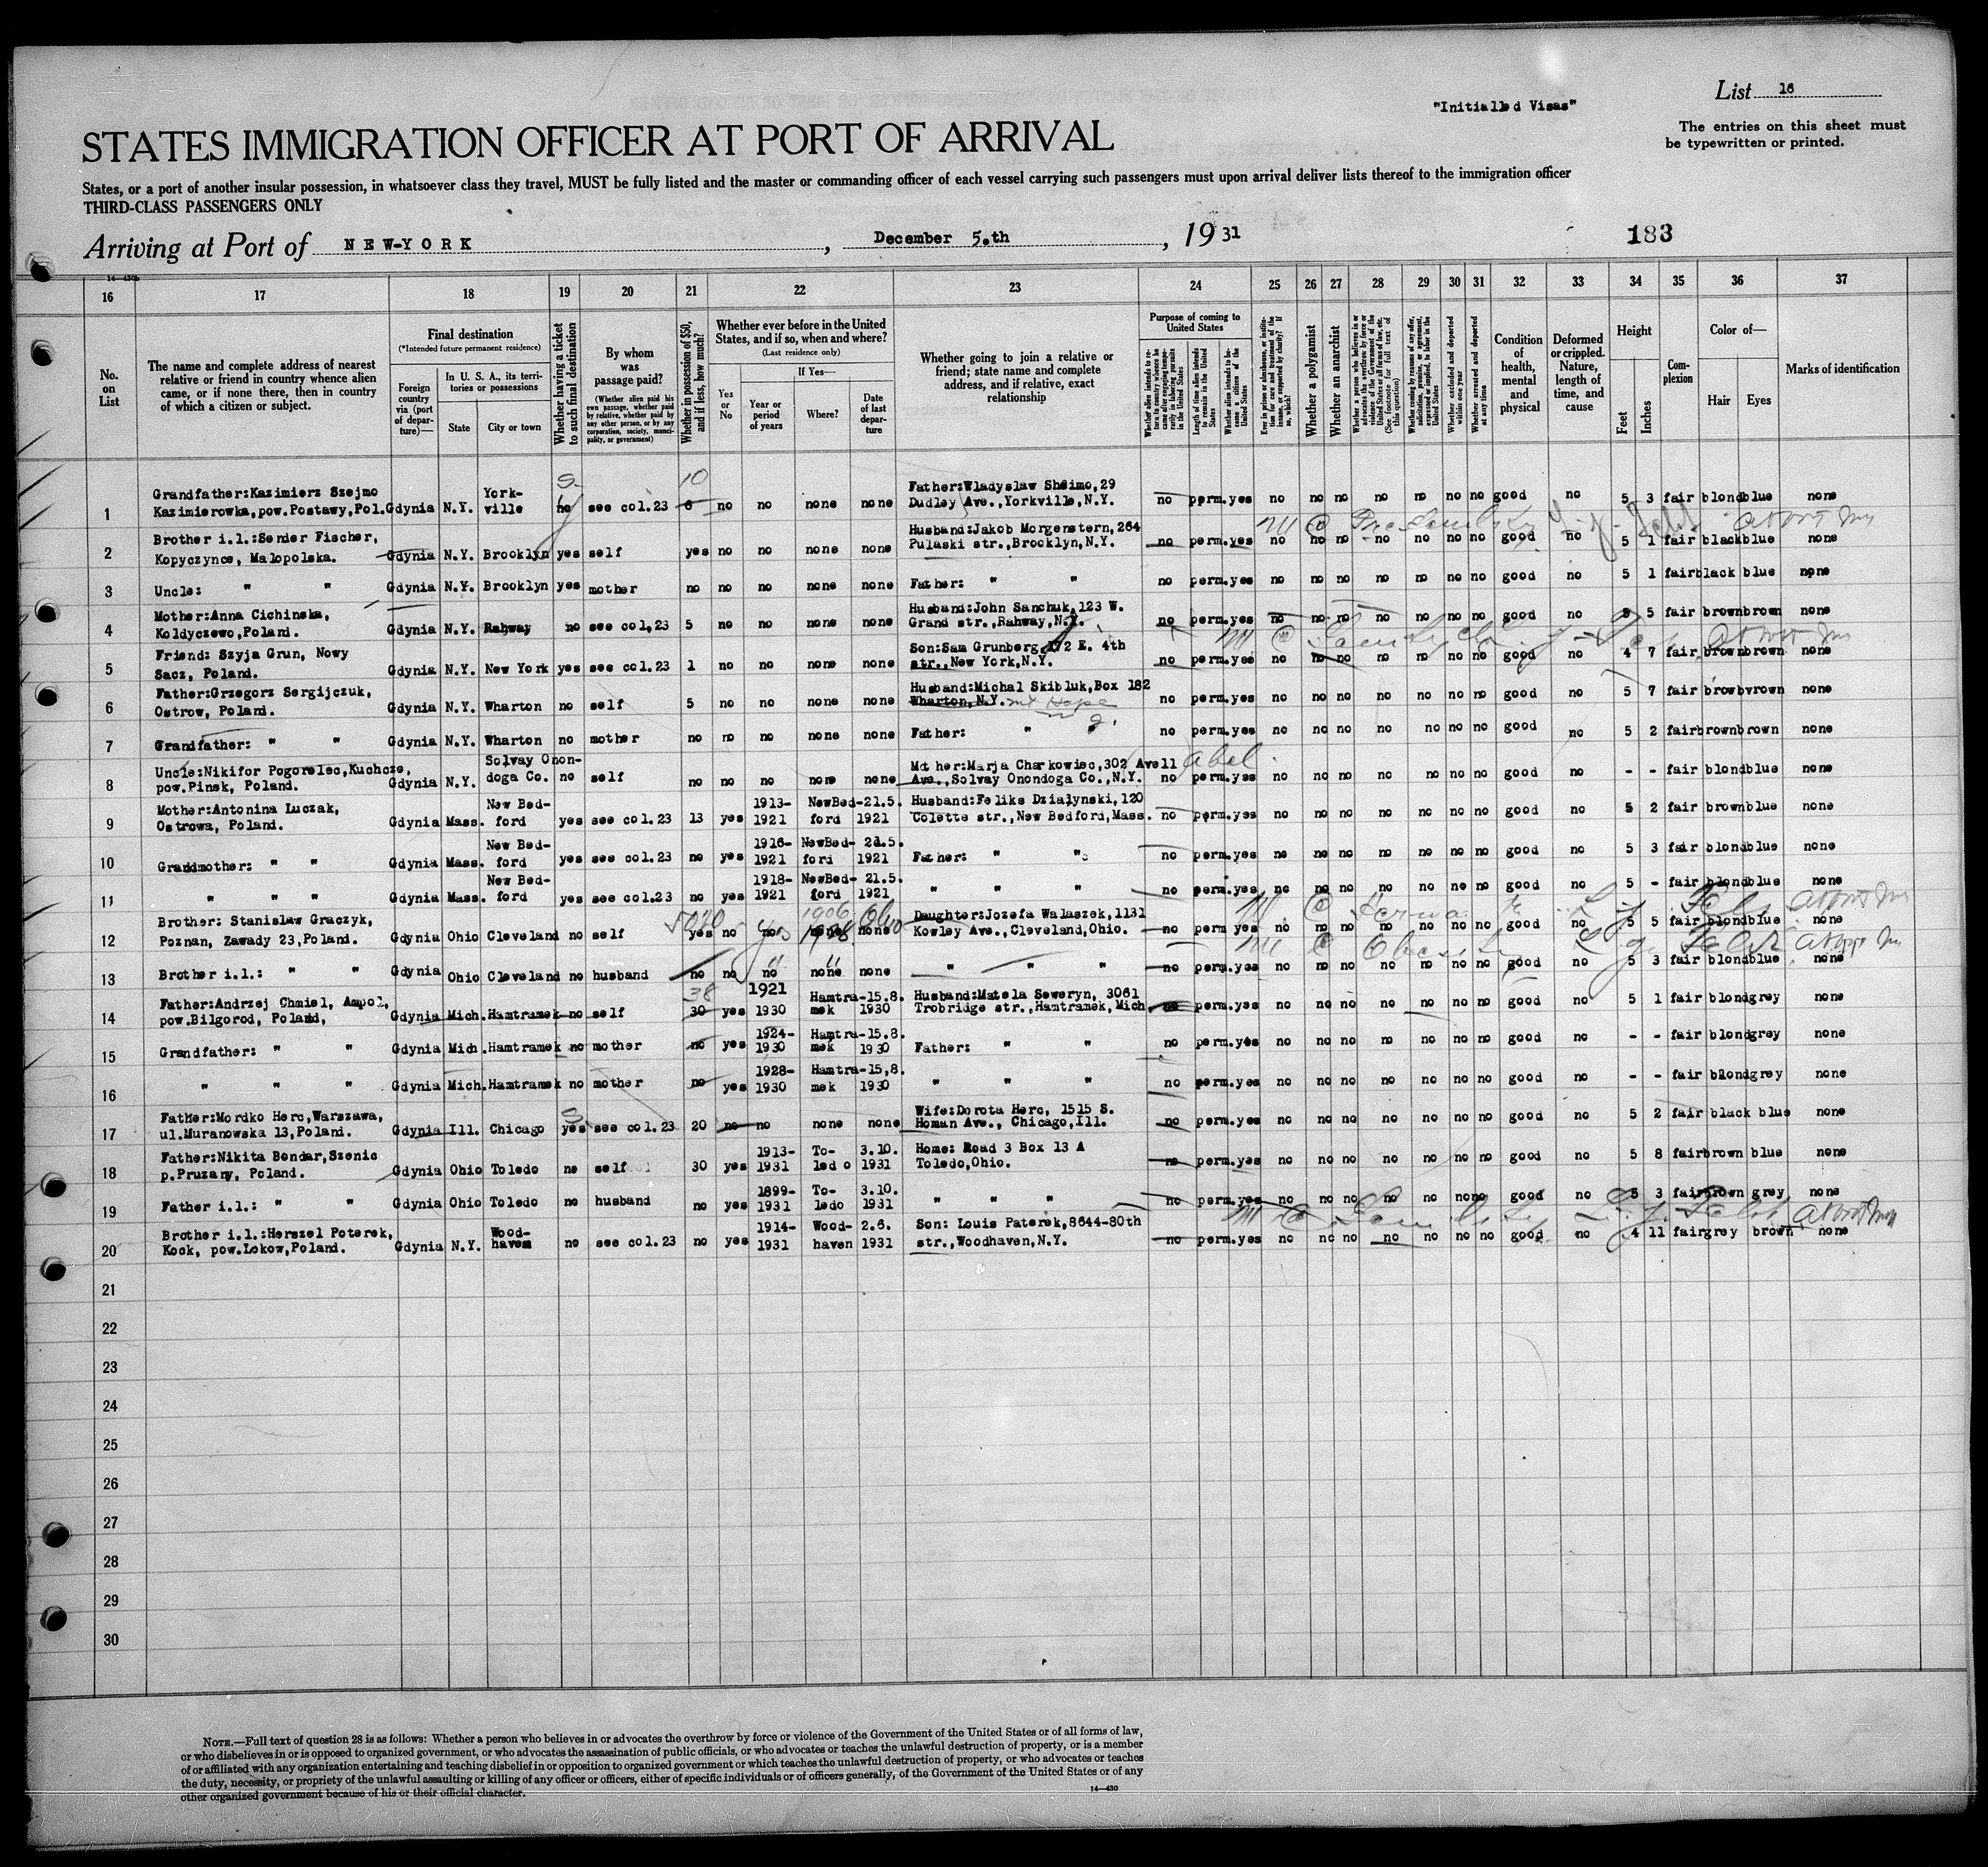 List 16
"Initialled Visas"
The entries on this sheet must
be typewritten or printed.
STATES IMMIGRATION OFFICER AT PORT OF ARRIVAL
States, or a port of another insular possession, in whatsoever class they travel, MUST be fully listed and the master or commanding officer of each vessel carrying such passengers must upon arrival deliver lists thereof to the immigration officer
THIRD-CLASS PASSENGERS ONLY
Arriving at Port of NEW-YORK, December 5.th, 1931
183
16 17 18 19 20 21 22 23 24 25 26 27 28 29 30 31 32 33 34 35 36 37
No. on List
The name and complete address of nearest
relative or friend in country whence alien
came, or if none there, then in country
of which a citizen or subject.
Final destination
(*Intended future permanent residence)
Foreign country via (port of departure)—
In U. S. A., its territories or possessions
State
City or town
Whether having a ticket to such final destination
By whom was passage paid?
(Whether alien paid his own passage, whether paid by relative, whether paid by any other person, or by any corporation, society, municipality, or government)
Whether in possession of $50, and if less, how much?
Whether ever before in the United
States, and if so, when and where?
(Last residence only)
Yes or No
If Yes—
Year or period of years
Where?
Date of last departure
Whether going to join a relative or
friend; state name and complete
address, and if relative, exact
relationship
Purpose of coming to United States
Whether alien intends to return to country whence he came after engaging temporarily in laboring pursuits in the United States
Length of time alien intends to remain in the United States
Whether alien intends to become a citizen of the United States
Ever in prison or almshouse, or institution for care and treatment of the insane, or supported by charity? If so, which?
Whether a polygamist
Whether an anarchist
Whether a person who believes in or advocates the overthrow by force or violence of the Government of the United States or all forms of law, etc. (See footnote for full text of this question)
Whether coming by reasons of any offer, solicitation, promise, or agreement, expressed or implied, to labor in the United States
Whether excluded and deported within one year
Whether arrested and deported at any time
Condition of health, mental and physical
Deformed or crippled. Nature, length of time, and cause
Height
Feet
Inches
Complexion
Color of—
Hair
Eyes
Marks of identification
1 Grandfather:Kazimierz Szejmo Kazimierowka,pow.Postawy,Pol. Gdynia N.Y. York-ville no see col.23 6 10 no no none none Father:Wladyslaw Sheimo,29 Dudley Ave.,Yorkville,N.Y. no perm.yes no no no no no no no good no 5 3 fair blond blue none
2 Brother i.l.:Senier Fischer, Kopyczynce, Malopolska. Gdynia N.Y. Brooklyn yes self yes no no none none Husband:Jakob Morgenstern,264 Pulaski str.,Brooklyn,N.Y. no perm.yes no no no no no no no good no 5 1 fair black blue none
3 Uncle: " " Gdynia N.Y. Brooklyn yes mother no no no none none Father: " " no perm.yes no no no no no no no good no 5 1 fair black blue none
4 Mother:Anna Cichinska, Koldyczewo,Poland. Gdynia N.Y. Rahway no see col,23 5 no no none none Husband:John Sanchuk,123 W. Grand str.,Rahway,N.Y. no perm.yes no no no no no no no good no 5 5 fair brown brown none
5 Friend: Szyja Grun, Nowy Sacz, Poland. Gdynia N.Y. New York yes see col.23 1 no no none none Son:Sam Grunberg,172 E. 4th str.,New York,N.Y. no perm.yes no no no no no no no good no 4 7 fair brown brown none
6 Father:Grzegorz Sergijczuk, Ostrow, Poland. Gdynia N.Y. Wharton no self 5 no no none none Husband:Michal Skibluk,Box 182 Wharton,N.Y. Mt Hope no perm.yes no no no no no no no good no 5 7 fair brow bvrown none
7 Grandfather: " " Gdynia N.Y. Wharton no mother no no no none none Father: " no perm.yes no no no no no no no good no 5 2 fair brown brown none
8 Uncle:Nikifor Pogorelec,Kuchcze, pow.Pinsk, Poland. Gdynia N.Y. Solvay Onon-doga Co. no self no no no none none Mother:Marja Charkowiec,302 Avell Ave.,Solvay Onondoga Co.,N.Y. Abel no perm.yes no no no no no no no good no - - fair blond blue none
9 Mother:Antonina Luczak, Ostrowa, Poland. Gdynia Mass. New Bed-ford yes see col.23 13 yes 1913-1921 NewBed-ford 21.5. 1921 Husband:Feliks Działynski,120 Colette str.,New Bedford,Mass. no perm.yes no no no no no no no good no 5 2 fair brown blue none
10 Grandmother: " " Gdynia Mass. New Bed-ford yes see col.23 no yes 1916-1921 NewBed-ford 21.5. 1921 Father: " " no perm.yes no no no no no no no good no 5 3 fair blond blue none
11 " " " Gdynia Mass. New Bed-ford yes see col.23 no yes 1918-1921 NewBed-ford 21.5. 1921 " " " no perm.yes no no no no no no no good no 5 - fair blond blue none
12 Brother: Stanislaw Graczyk, Poznan, Zawady 23,Poland. Gdynia Ohio Cleveland no self yes no no none none yes 1906 1928 Ohio Daughter:Jozefa Walaszek,1131 Kowley Ave.,Cleveland,Ohio. no perm yes no no no no no no no good no 5 5 fair blond blue none
13 Brother i.l.: " " Gdynia Ohio Cleveland no husband no no no none none " " no perm.yes no no no no no no no good no 5 3 fair blond blue none
14 Father:Andrzej Chmiel, Ampol, pow.Bilgorod, Poland, Gdynia Mich. Hamtramek no self 30 38 yes 1921 1930 Hamtra-mek 15.8. 1930 Husband:Matela Seweryn, 3061 Trobridge str.,Hamtramek,Mich. no perm.yes no no no no no no no good no 5 1 fair blond grey none
15 Grandfather: " " Gdynia Mich. Hamtramek no mother no yes 1924-1930 Hamtra-mek 15.8. 1930 Father: " " no perm.yes no no no no no no no good no - - fair blond grey none
16 " " " Gdynia Mich. Hamtramek no mother no yes 1928-1930 Hamtra-mek 15,8. 1930 " " " no perm.yes no no no no no no no good no - - fair blond grey none
17 Father:Mordko Herc,Warszawa, ul.Muranowska 13,Poland. Gdynia Ill. Chicago yes see col.23 20 no no none none Wife:Dorota Herc, 1515 S. Homan Ave., Chicago,Ill. no perm.yes no no no no no no no good no 5 2 fair black blue none
18 Father:Nikita Bondar,Szenic p.Pruzany, Poland. Gdynia Ohio Toledo no self 30 yes 1913-1931 To-ledo 3.10. 1931 Home: Road 3 Box 13 A Toledo,Ohio. no perm.yes no no no no no no no good no 5 8 fair brown blue none
19 Father i.l.: " " Gdynia Ohio Toledo no husband no yes 1899-1931 To-ledo 3.10. 1931 " " " no perm.yes no no no no no no no good no 5 3 fair brown grey none
20 Brother i.l.:Herszel Poterek, Kock, pow.Lokow,Poland. Gdynia N.Y. Wood-haven no see col.23 no yes 1914-1931 Wood-haven 2.6. 1931 Son: Louis Paterek,8644-80th str.,Woodhaven,N.Y. no perm.yes no no no no no no no good no 4 11 fair grey brown none
21
22
23
24
25
26
27
28
29
30
NOTE.—Full text of question 28 is as follows: Whether a person who believes in or advocates the overthrow by force or violence of the Government of the United States or of all forms of law,
or who disbelieves in or is opposed to organized government, or who advocates the assassination of public officials, or who advocates or teaches the unlawful destruction of property, or is a member
of or affiliated with any organization entertaining and teaching disbelief in or opposition to organized government or which teaches the unlawful destruction of property, or who advocates or teaches
the duty, necessity, or propriety of the unlawful assaulting or killing of any officer or officers, either of specific individuals or of officers generally, of the Government of the United States or of any
other organized government because of his or their official character.
14—430